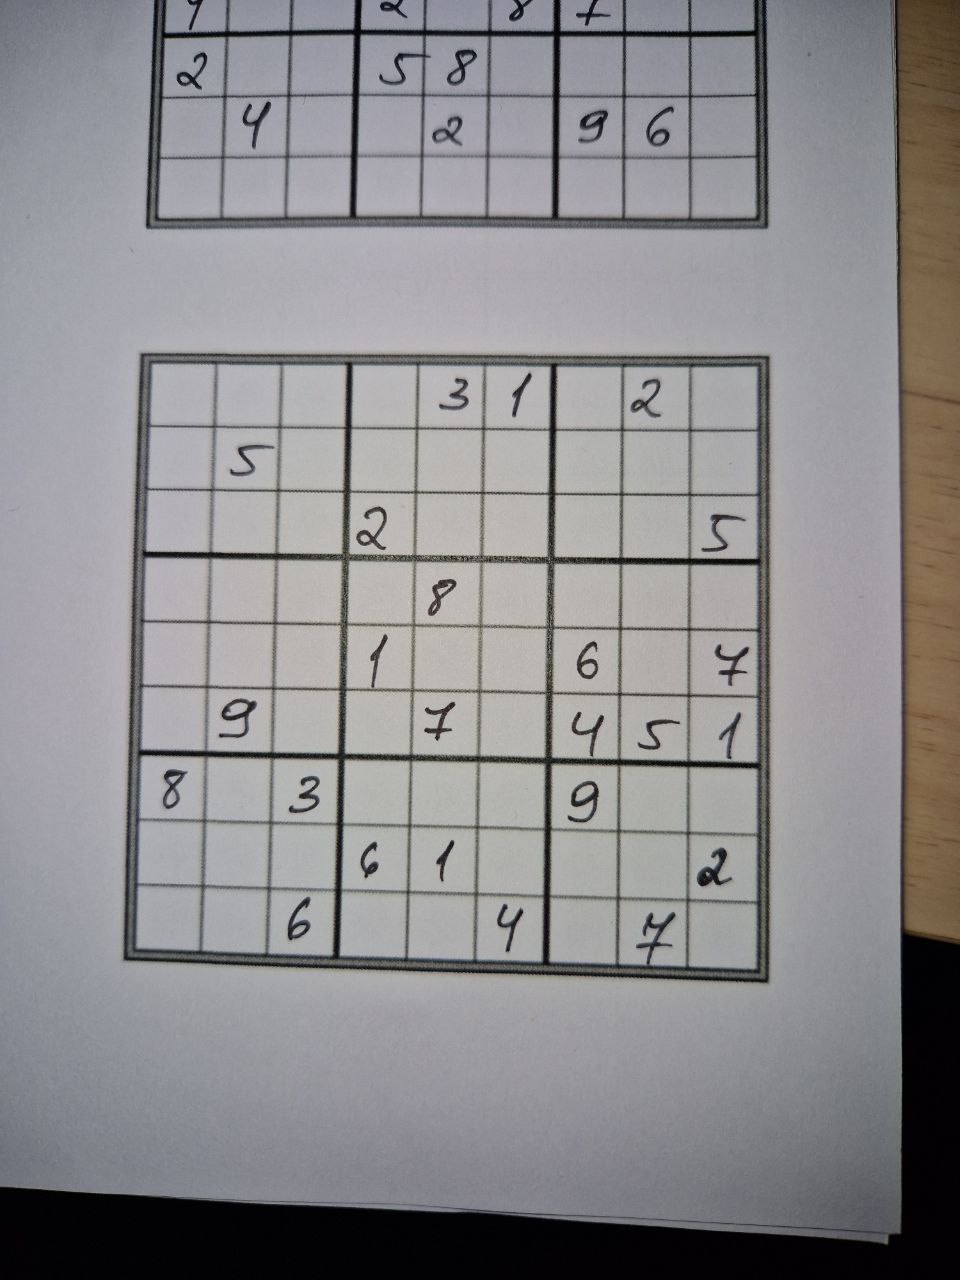 2 8 7
2 5 8
4 2 9 6
3 1 2
5
2 5
8
1 6 7
9 7 4 5 1
8 3 9
6 1 2
6 4 7